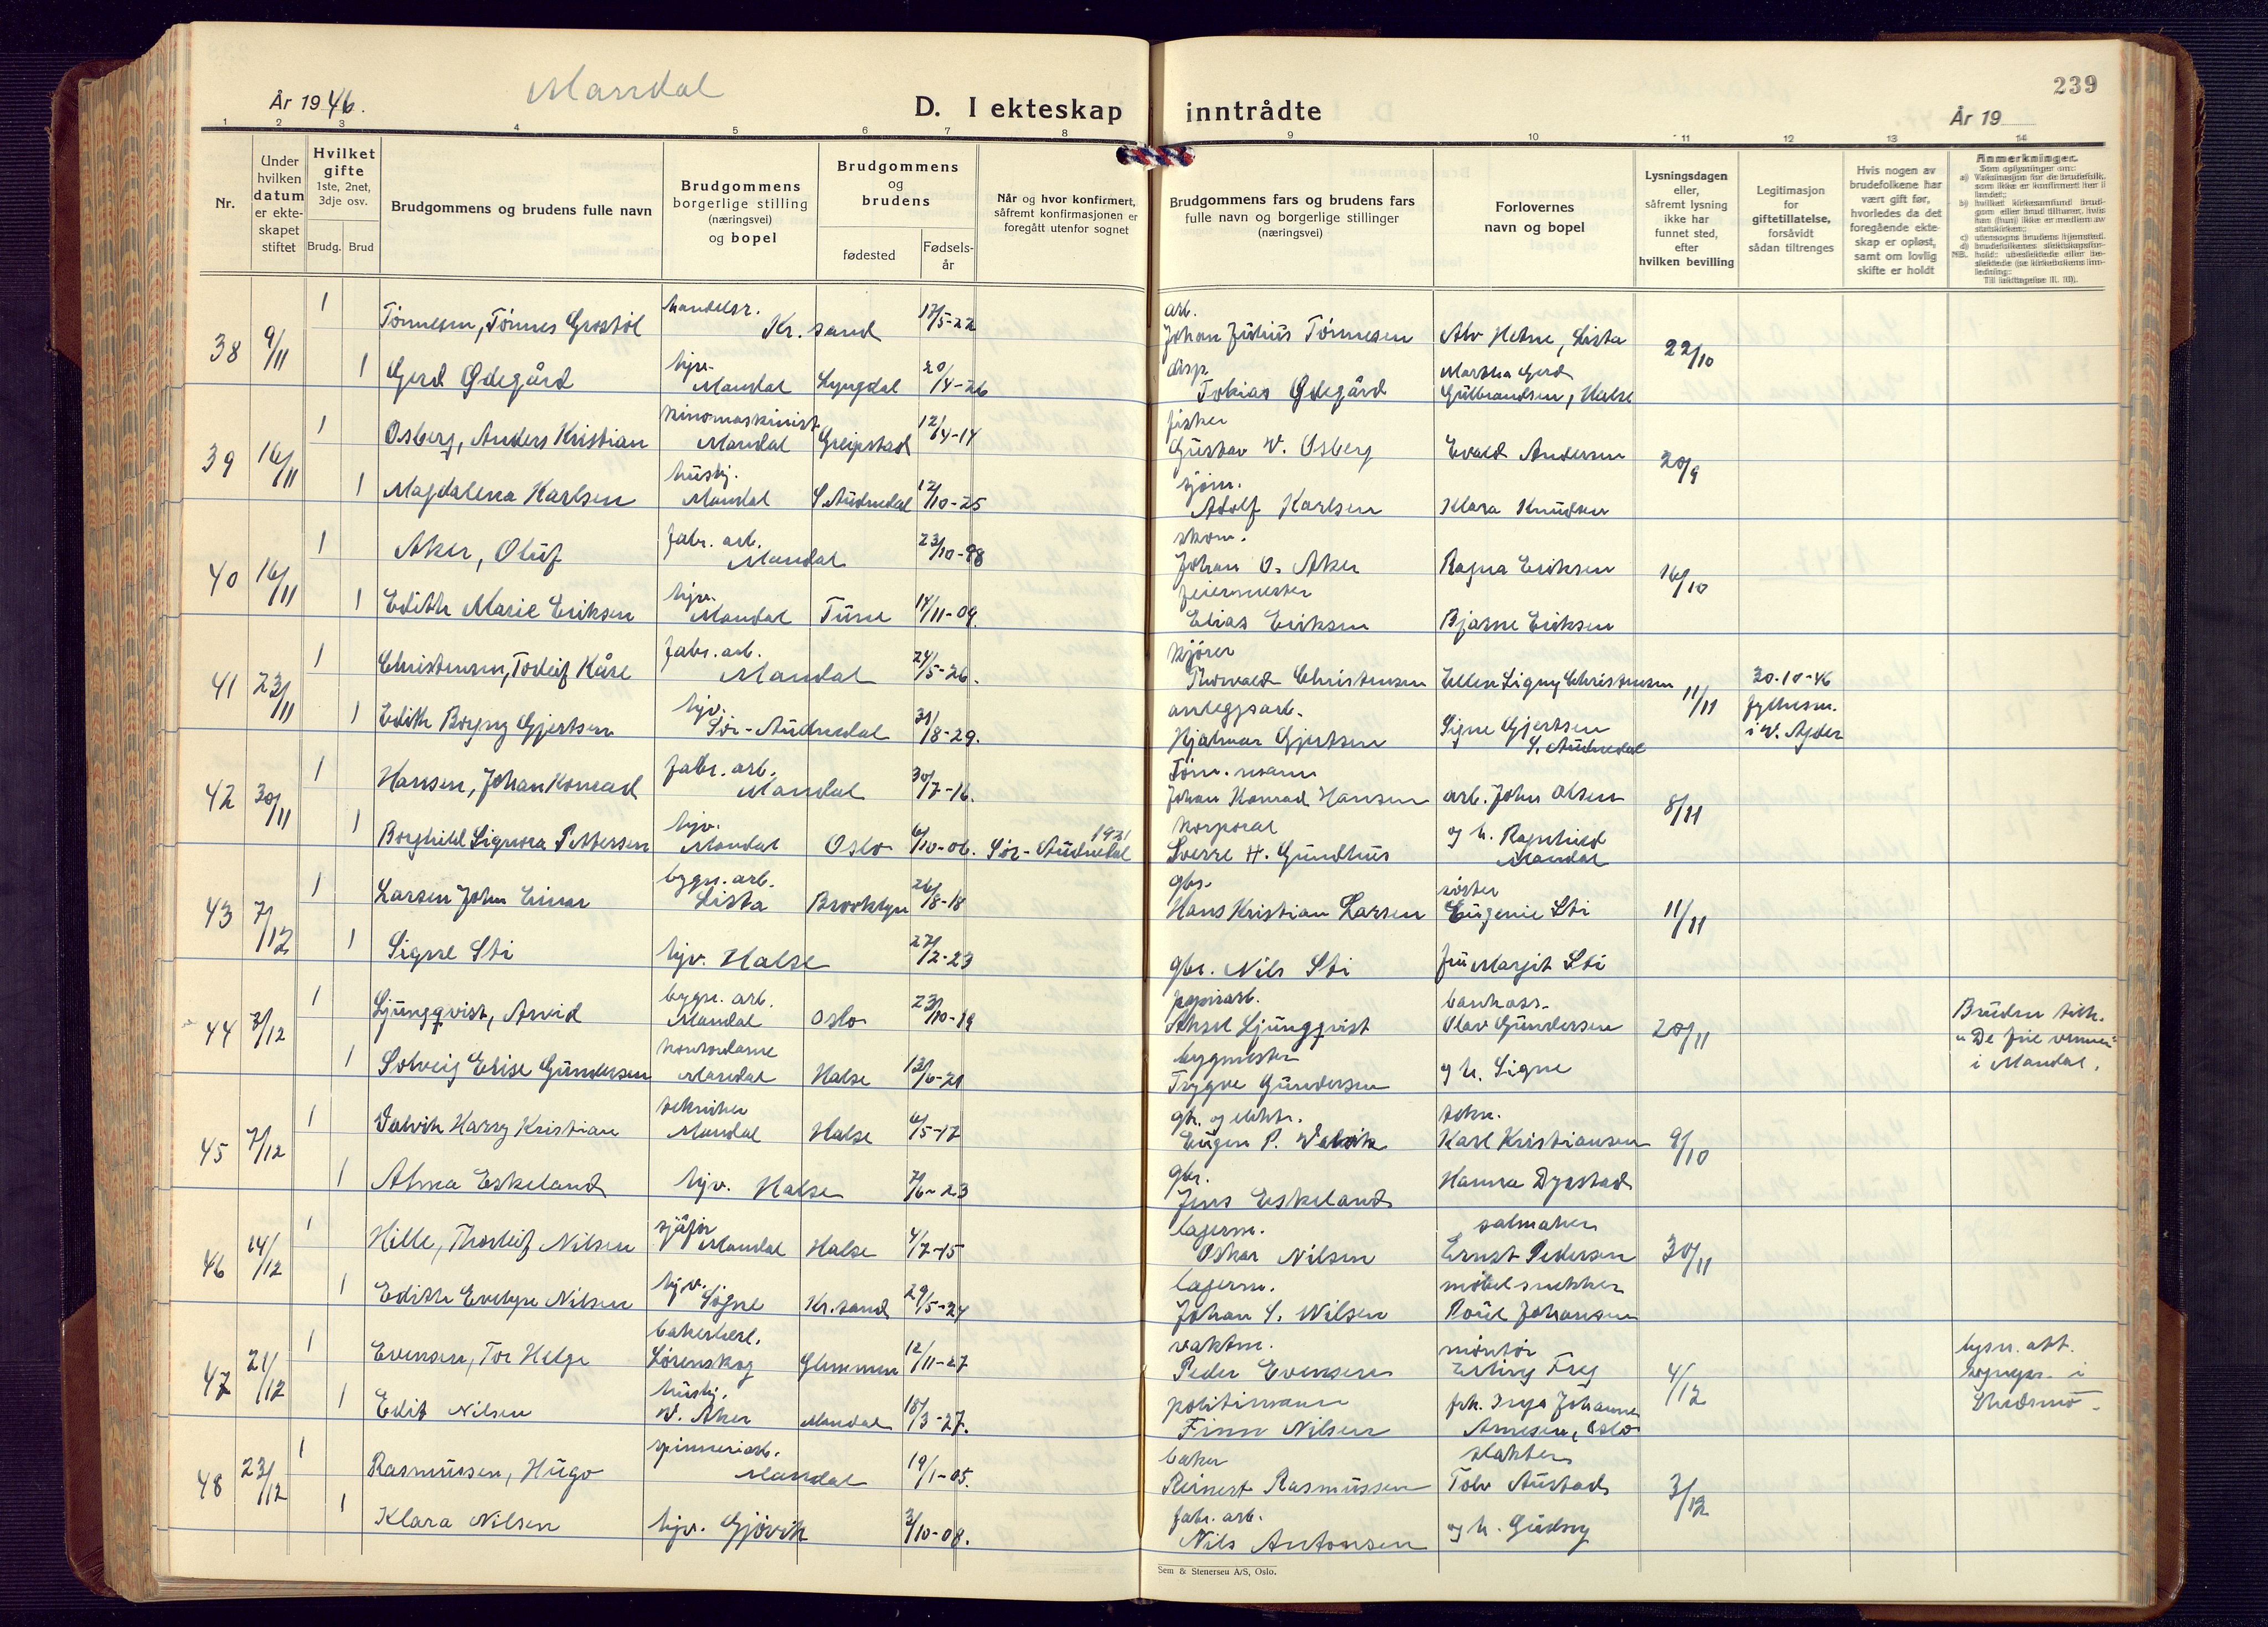 År 1946.
Mandal
D. I ekteskap inntrådte
239
År 19
1 2 3 4 5 6 7 8 9 10 11 12 13 14
Nr.
Under hvilken datum er ekteskapet stiftet
Hvilket gifte 1ste, 2net, 3dje osv.
Brudg. Brud
Brudgommens og brudens fulle navn
Brudgommens borgerlige stilling (næringsvei) og bopel
Brudgommens og brudens
fødested
Fødselsår
Når og hvor konfirmert, såfremt konfirmasjonen er foregått utenfor sognet
Brudgommens fars og brudens fars fulle navn og borgerlige stillinger (næringsvei)
Forlovernes navn og bopel
Lysningsdagen eller, såfremt lysning ikke har funnet sted, efter hvilken bevilling
Legitimasjon for giftetillatelse, forsåvidt sådan tiltrenges
Hvis nogen av brudefolkene har vært gift før, hvorledes da det foregående ekteskap er opløst, samt om lovlig skifte er holdt
Anmerkninger.
38 9/11 1 Tönnesen, Tönnes Grostöl handelsr. Kr.sand 17/5-22 arb. Johan Julius Tönnesen Alv Hetne, Lista 22/10
1 Gerd Ødegård hjv. Mandal Lyngdal 20/4-26 disp. Tobias Ødegård Martha Gerd Gulbrandsen, Halse
39 16/11 1 Osberg, Anders Kristian kinomaskinist Mandal Greipstad 12/4-14 fisker Gustav W. Osberg Evald Andersen 20/9
1 Magdalena Karlsen hushj. Mandal S. Audnedal 12/10-25 sjöm. Adolf Karlsen Klara Knudsen
40 16/11 1 Aker, Oluf fabr. arb. Mandal 23/10-98 skom. Johan O. Aker Ragna Eriksen 16/10
1 Edith Marie Eriksen hjv. Mandal Tune 14/11-09. feiermester Elias Eriksen Bjarne Eriksen
41 23/11 1 Christensen, Torleif Kåre fabr. arb. Mandal 24/5-26. kjörer Thorvald Christensen Ellen Signy Christensen 11/11 30.10-46 fylkesm. i V. Agder
1 Edith Borgny Gjertsen hjv. Sör-Audnedal 31/8-29. anleggsarb. Hjalmar Gjertsen Signe Gjertsen S. Audnedal
42 30/11 1 Hansen, Johan Konrad fabr. arb. Mandal 30/7-16. Töm.mann Johan Konrad Hansen arb. John Olsen 8/11
1 Borghild Signora Pettersen hjv. Mandal Oslo 6/10-06. Sör-Audnedal 1921 korporal Sverre H. Gundhus og h. Ragnhild Mandal
43 7/12 1 Larsen John Einar bygn. arb. Lista Brooklyn 26/8-18 gbr. Hans Kristian Larsen söster Eugenie Sti 11/11
1 Signe Sti hjv. Halse 27/2-23 gbr. Nils Sti fru Margit Sti
44 7/12 1 Ljungqvist, Arvid bygn. arb. Mandal Oslo 23/10-19 papirarb. Aksel Ljungqvist bankass. Olav Gundersen 20/11 Bruden tilh. "De frie venner" i Mandal.
1 Solveig Elise Gundersen kontordame Mandal Halse 13/6-21 bygmester Trygve Gundersen og h. Signe
45 7/12 1 Valvik Harry Kristian tekniker Mandal Halse 6/5-17 gbr. og elektr. Eugen P. Valvik tekn. Karl Kristiansen 9/10
1 Alma Eskeland hjv. Halse 7/6-23 gbr. Jens Eskeland Hanna Dyrstad
46 14/12 1 Hille, Thorleif Nilsen sjåför Mandal Halse 4/7-15 lagerm. Oskar Nilsen salmaker Ernst Pedersen 30/11
1 Edith Evelyn Nilsen hjv. Sögne Kr.sand 29/5-24 lagerm. Johan S. Nilsen möbelsnekker Poul Johansen
47 21/12 1 Evensen, Tor Helge bakerbest. Lörenskog Glemmen 12/11-27 vaktm. Peder Evensen montör Erling Freg 4/12 lysn. att. sogнpr. i Skedsmo.
1 Edit Nilsen hushj. V. Aker Mandal 18/3-27. politimann Finn Nilsen frk. Inga Johanne Arnesen, Oslo
48 23/12 1 Rasmussen, Hugo spinneriarb. Mandal 19/1-05. baker Reinert Rasmussen slakter Tolv Austad 3/12
1 Klara Nilsen hjv. Gjövik 3/10-08. fabr. arb. Nils Antonsen og h. Gudny
Sem & Stenersen A/S, Oslo.